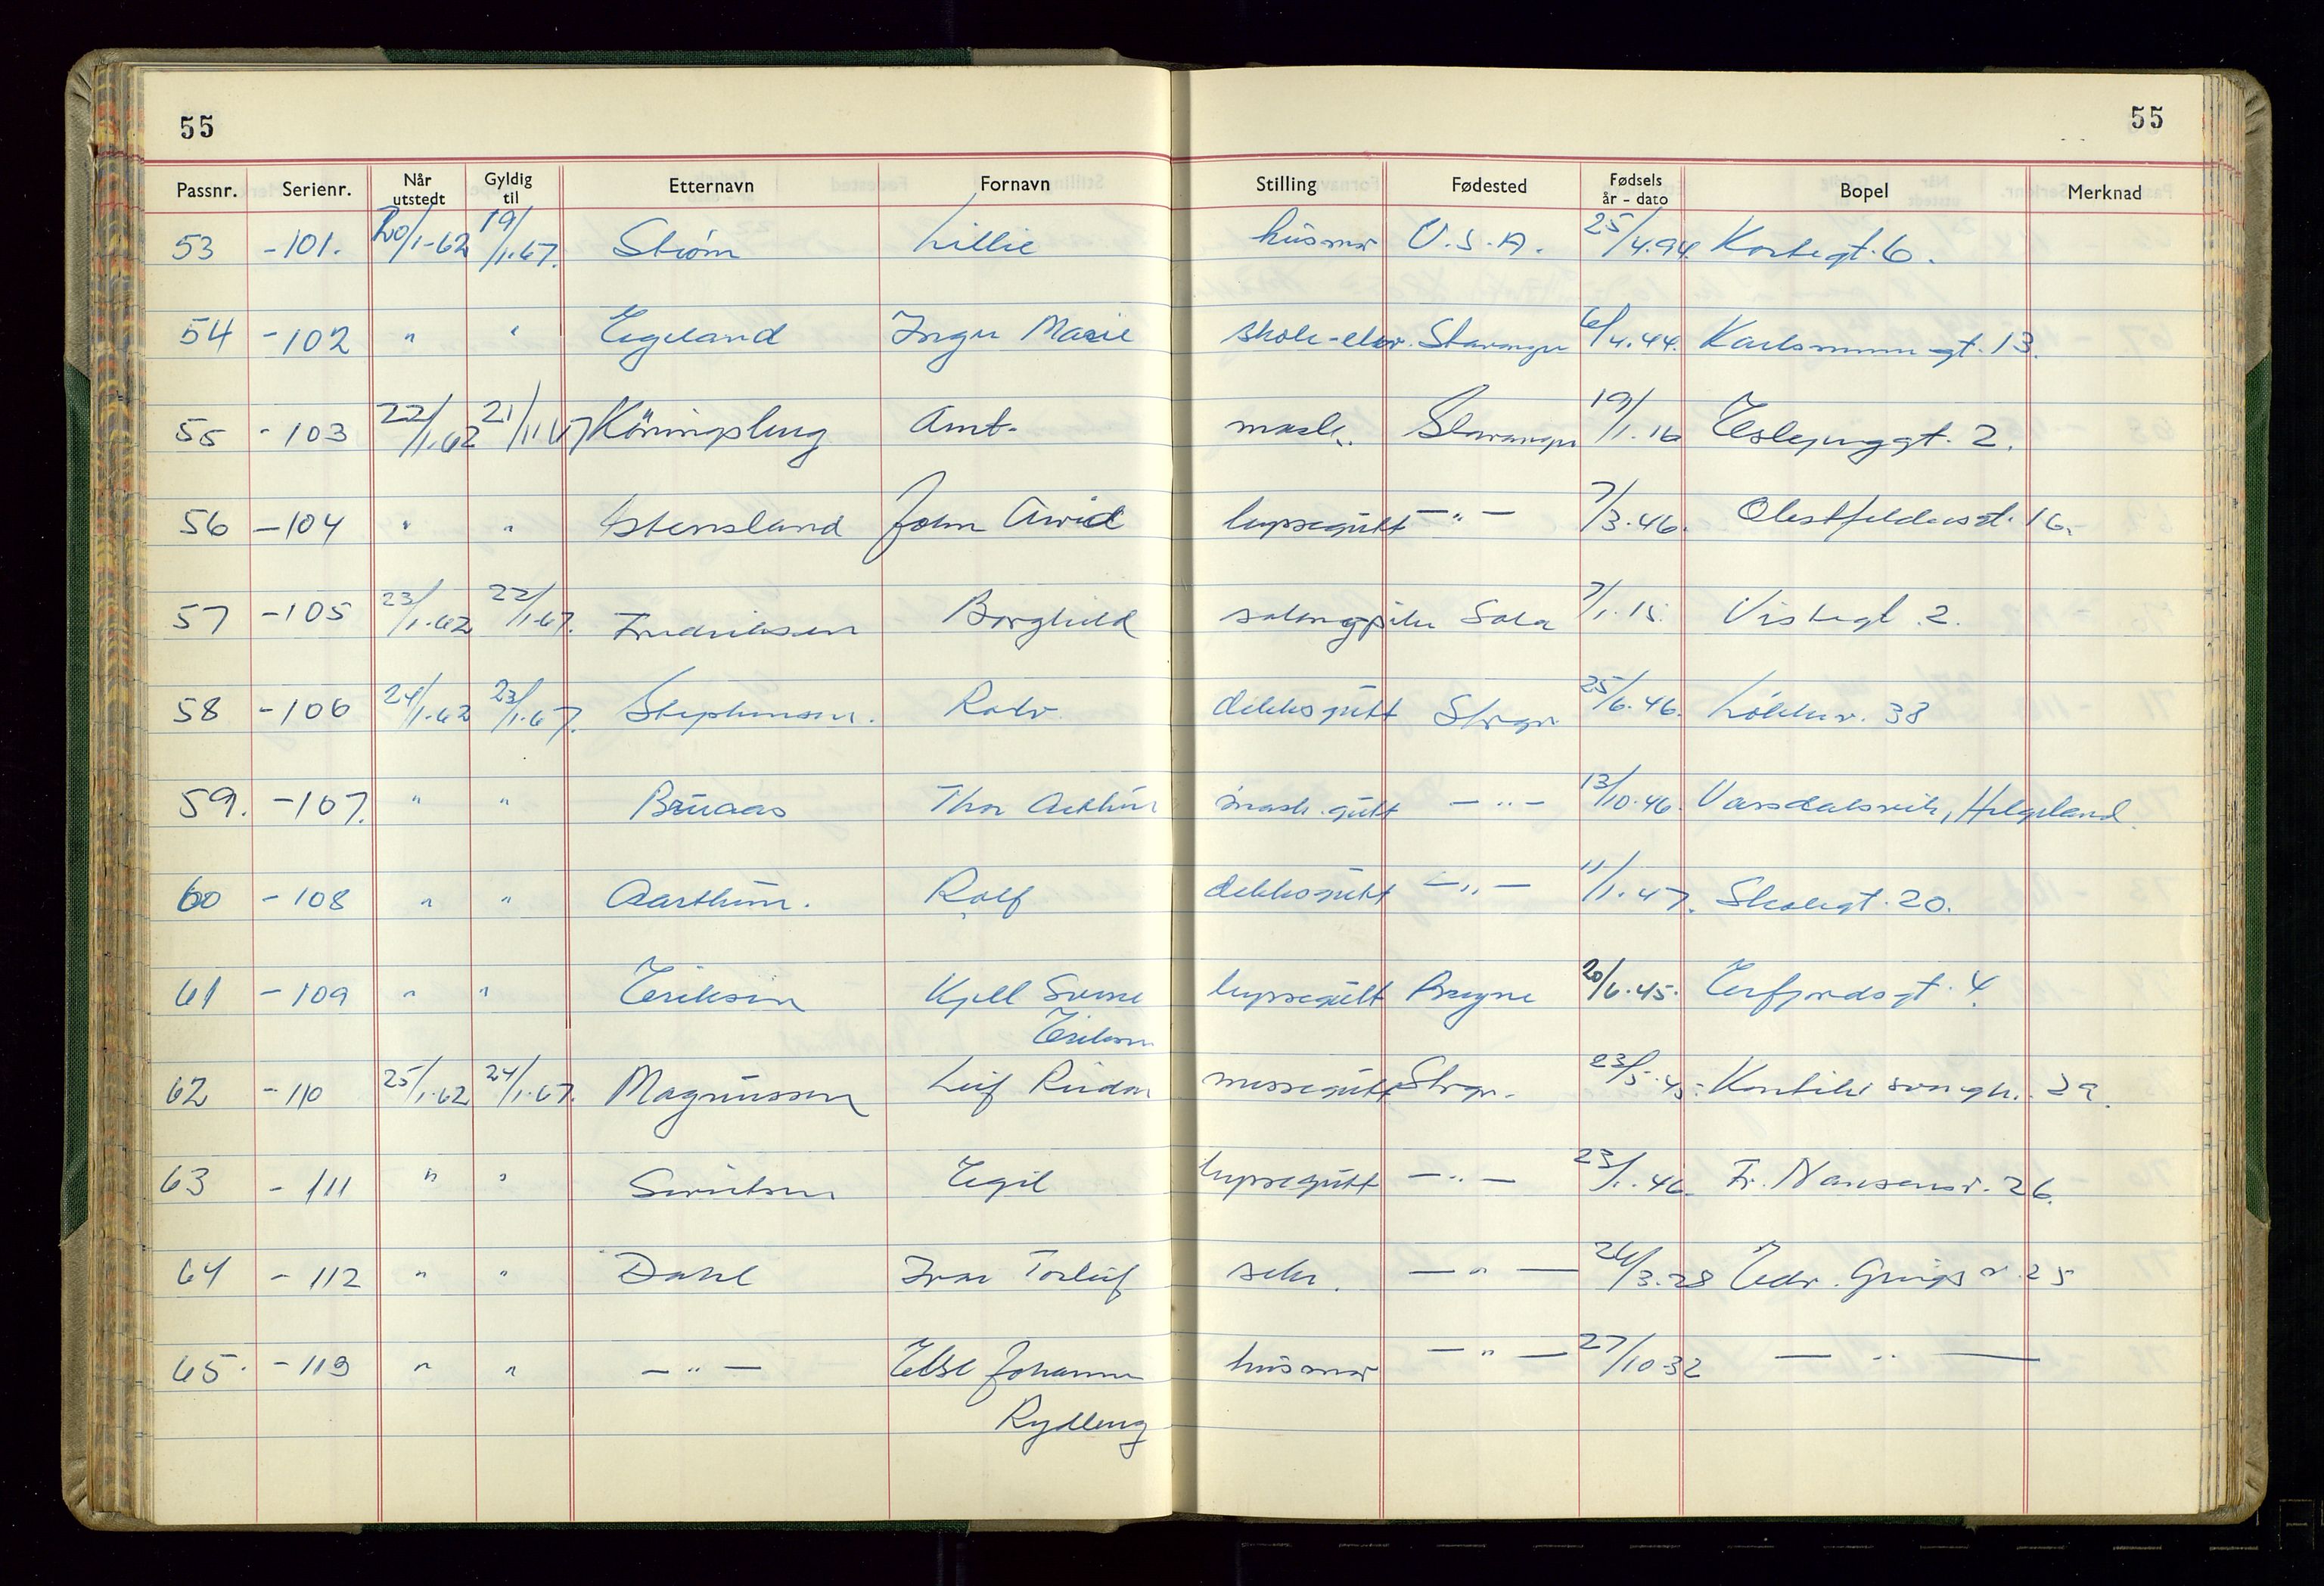 55 55
Passnr. Serienr. Når utstedt Gyldig til Etternavn Fornavn Stilling Fødested Fødsels år - dato Bopel Merknad
53 -101. 20/1-62 19/1.67. Strøm Lillie husmor U.S.A. 25/4.94. Kortegt. 6.
54 -102 " " Eigeland Inger Marie skole-elev. Stavanger 6/4.44. Karlsminnegt. 13.
55 -103 22/1.62 21/1.67 Köningsberg Arnt. mask. Stavanger 19/1.16 2.
56 -104 " " Østensland John Arvid byssegutt -"- 7/3.46. Obstfeldersgt. 16.
57 -105 23/1.62 22/1.67. Fredriksen Borghild salongpike Sola 7/1.15. Vistegt. 2.
58 -106 24/1.62 23/1.67. Stephensen. Roald dekksgutt Stvgr 25/6.46. Løkkev. 38
59. -107. " " Bruaas Thor Arthur mask.gutt -"- 13/10.46. Helgeland.
60 -108 " " Aarthun. Rolf dekksgutt -"- 11/1.47. Skolegt. 20.
61 -109 " " Eriksen Kjell Sverre byssegutt Bryne 20/6.45. Erfjordsgt. 4.
Eriksen
62 -110 25/1.62 24/1.67. Magnussen Leif Reidar messegutt Stvgr. 23/5.45. Kontiki svingen. 29.
63 -111 " " Sivertsen Egil byssegutt -"- 23/1.46. Fr. Nansensv. 26.
64 -112 " " Dahl Ivar Torleif sekr. -"- 26/3.28 Edv. Griegs v. 25
65. -113 " " -"- Else Johanne husmor -"- 27/10 32 -"-
Rydberg